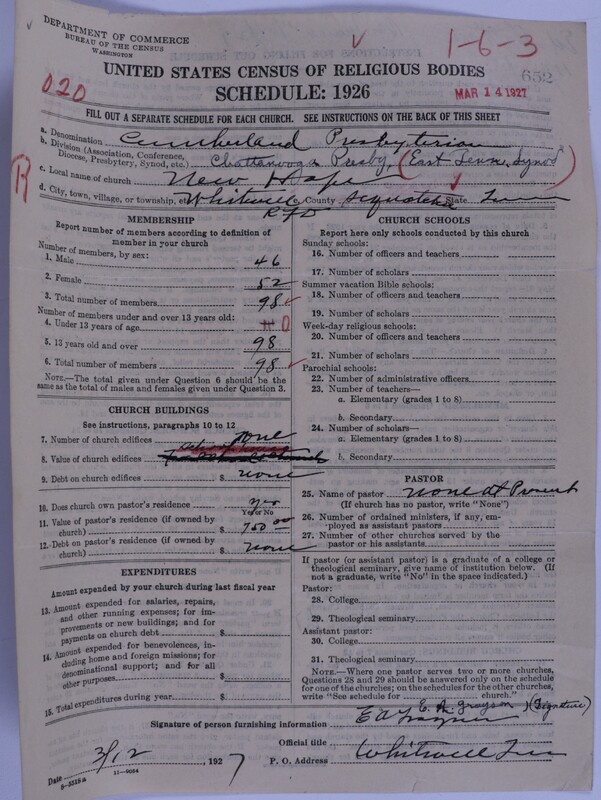 DEPARTMENT OF COMMERCE
BUREAU OF THE CENSUS
WASHINGTON
1-6-3
652
020
MAR 14 1927
UNITED STATES CENSUS OF RELIGIOUS BODIES
SCHEDULE: 1926
FILL OUT A SEPARATE SCHEDULE FOR EACH CHURCH. SEE INSTRUCTIONS ON THE BACK OF THIS SHEET
a. Denomination Cumberland Presbyterian
b. Division (Association, Conference, Diocese, Presbytery, Synod, etc.) Chattanooga Presby. (East Tenn. Synod)
c. Local name of church New Hope
d. City, town, village, or township, etc. Whitwell County Sequatchie State Tenn
RFD
MEMBERSHIP
Report number of members according to definition of
member in your church
Number of members, by sex:
1. Male 46
2. Female 52
3. Total number of members 98
Number of members under and over 13 years old:
4. Under 13 years of age 0
5. 13 years old and over 98
6. Total number of members 98
NOTE.—The total given under Question 6 should be the
same as the total of males and females given under Question 3.
CHURCH BUILDINGS
See instructions, paragraphs 10 to 12
7. Number of church edifices none
8. Value of church edifices
9. Debt on church edifices $ none
10. Does church own pastor's residence yes
Yes or No
11. Value of pastor's residence (if owned by
church) $ 750 00
12. Debt on pastor's residence (if owned by
church) $ none
EXPENDITURES
Amount expended by your church during last fiscal year
13. Amount expended for salaries, repairs,
and other running expenses; for im-
provements or new buildings; and for
payments on church debt $
14. Amount expended for benevolences, in-
cluding home and foreign missions; for
denominational support; and for all
other purposes $
15. Total expenditures during year $
CHURCH SCHOOLS
Report here only schools conducted by this church
Sunday schools:
16. Number of officers and teachers
17. Number of scholars
Summer vacation Bible schools:
18. Number of officers and teachers
19. Number of scholars
Week-day religious schools:
20. Number of officers and teachers
21. Number of scholars
Parochial schools:
22. Number of administrative officers
23. Number of teachers—
a. Elementary (grades 1 to 8)
b. Secondary
24. Number of scholars—
a. Elementary (grades 1 to 8)
b. Secondary
PASTOR
25. Name of pastor none at Present
(If church has no pastor, write "None")
26. Number of ordained ministers, if any, em-
ployed as assistant pastors
27. Number of other churches served by the
pastor or his assistants
If pastor (or assistant pastor) is a graduate of a college or
theological seminary, give name of institution below. (If
not a graduate, write "No" in the space indicated.)
Pastor:
28. College
29. Theological seminary
Assistant pastor:
30. College
31. Theological seminary
NOTE.—Where one pastor serves two or more churches,
Questions 28 and 29 should be answered only on the schedule
for one of the churches; on the schedules for the other churches,
write "See schedule for church."
E. A. Grayson (Signature)
Signature of person furnishing information E A Grayson
Official title
Date 3/12, 1927 P. O. Address Whitwell Tenn
8-5528a 11-9664